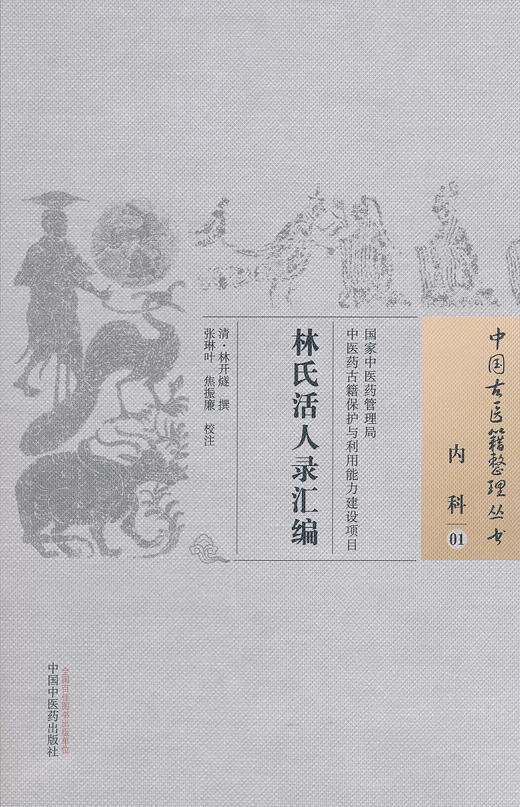 中国古医籍整理丛书
内科
01
国家中医药管理局
中医药古籍保护与利用能力建设项目
林氏活人录汇编
清·林开燧 撰
张琳叶 焦振廉 校注
全国百佳图书出版单位
中国中医药出版社